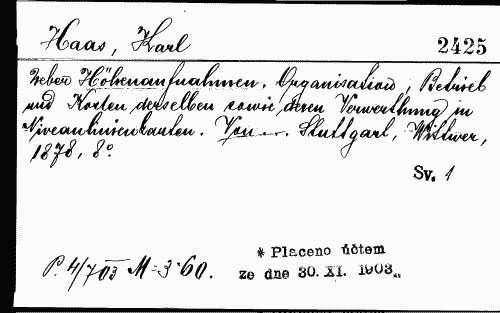 Haas, Karl
2425
Ueber Höhenaufnahmen. Organisation, Betrieb
und Kosten derselben sowie deren Verwerthung in
Niveaulinienkarten. Von —. Stuttgart, Wittwer,
1878, 8°.
Sv. 1
P. 4/7 03 M = 3·60.
* Placeno účtem
ze dne 30. XI. 1903.